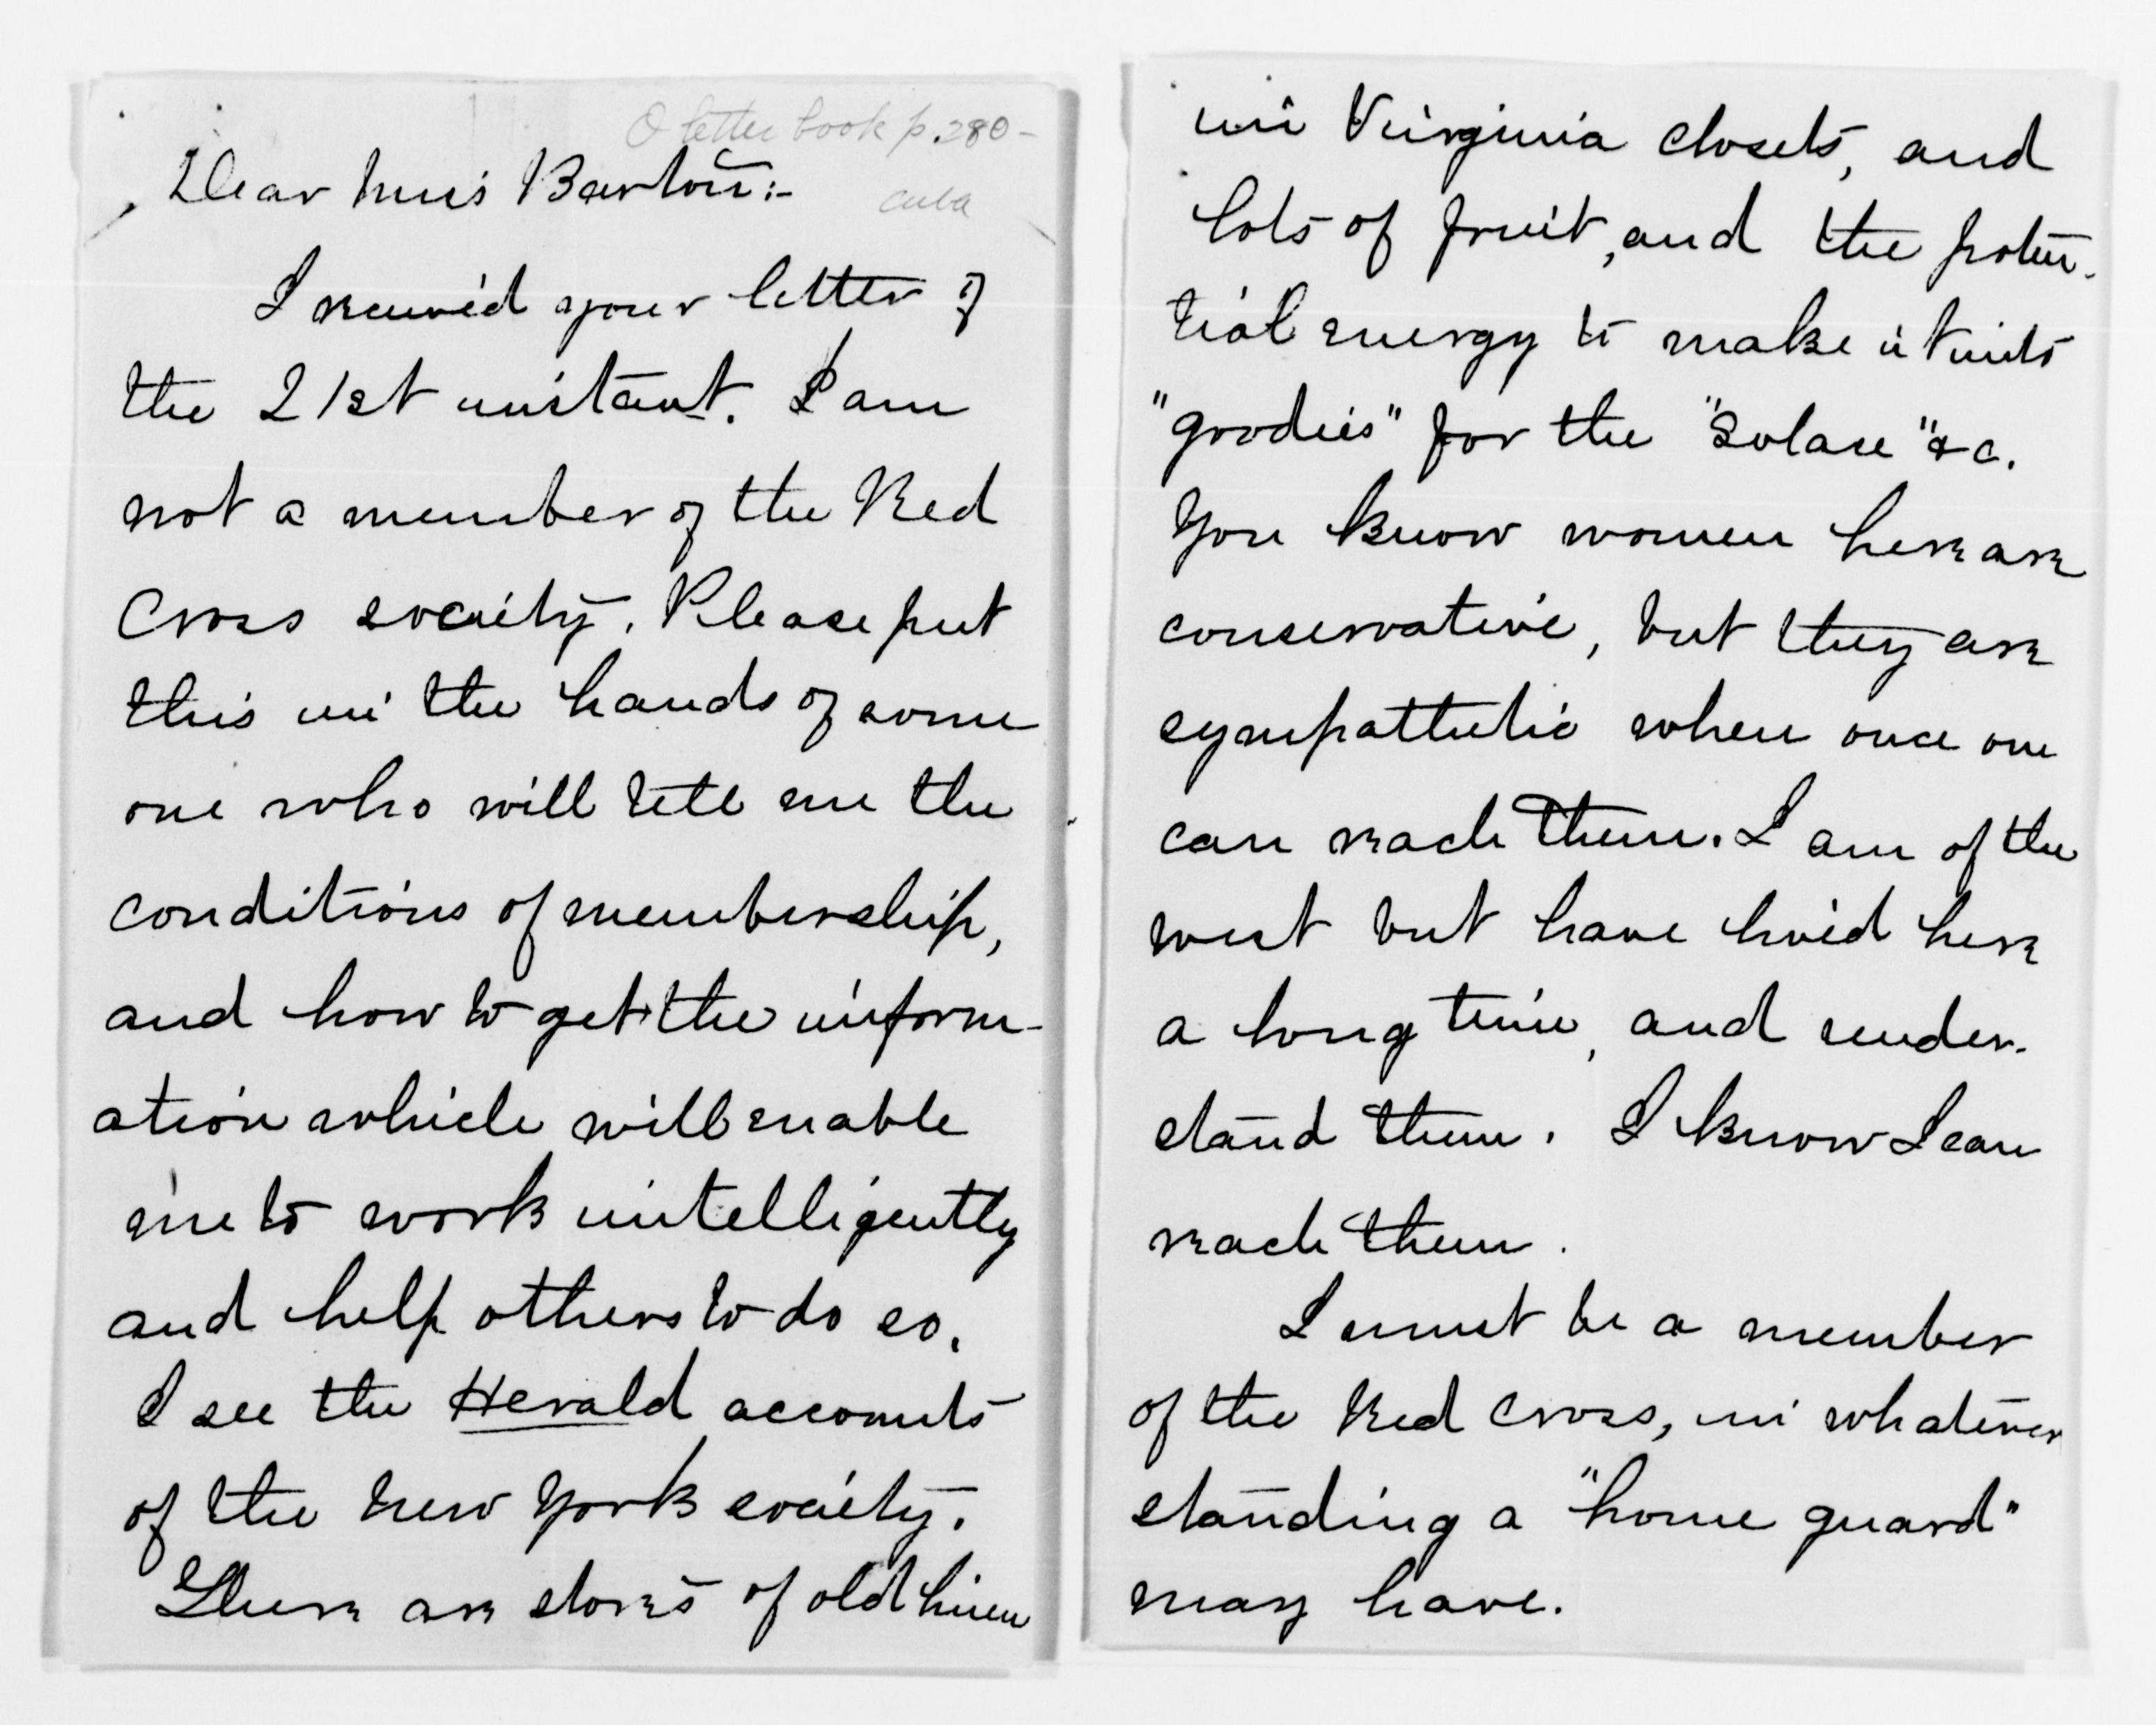 O letter book p. 280 -
Cuba
Dear Miss Barton:-
I received your letter of
the 21st instant. I am
not a member of the Red
Cross society. Please put
this in the hands of some
one who will tell me the
conditions of membership,
and how to get the inform-
ation which will enable
me to work intelligently
and help others to do so.
I see the Herald accounts
of the New York society.
There are stores of old linen
in Virginia closets, and
lots of fruit, and the poten-
tial energy to make it into
"goodies" for the "Solace" &c.
You know women here are
conservative, but they are
sympathetic when once one
can reach them. I am of the
west but have lived here
a long time, and under-
stand them. I know I can
reach them.
I must be a member
of the Red Cross, in whatever
standing a "home guard"
may have.